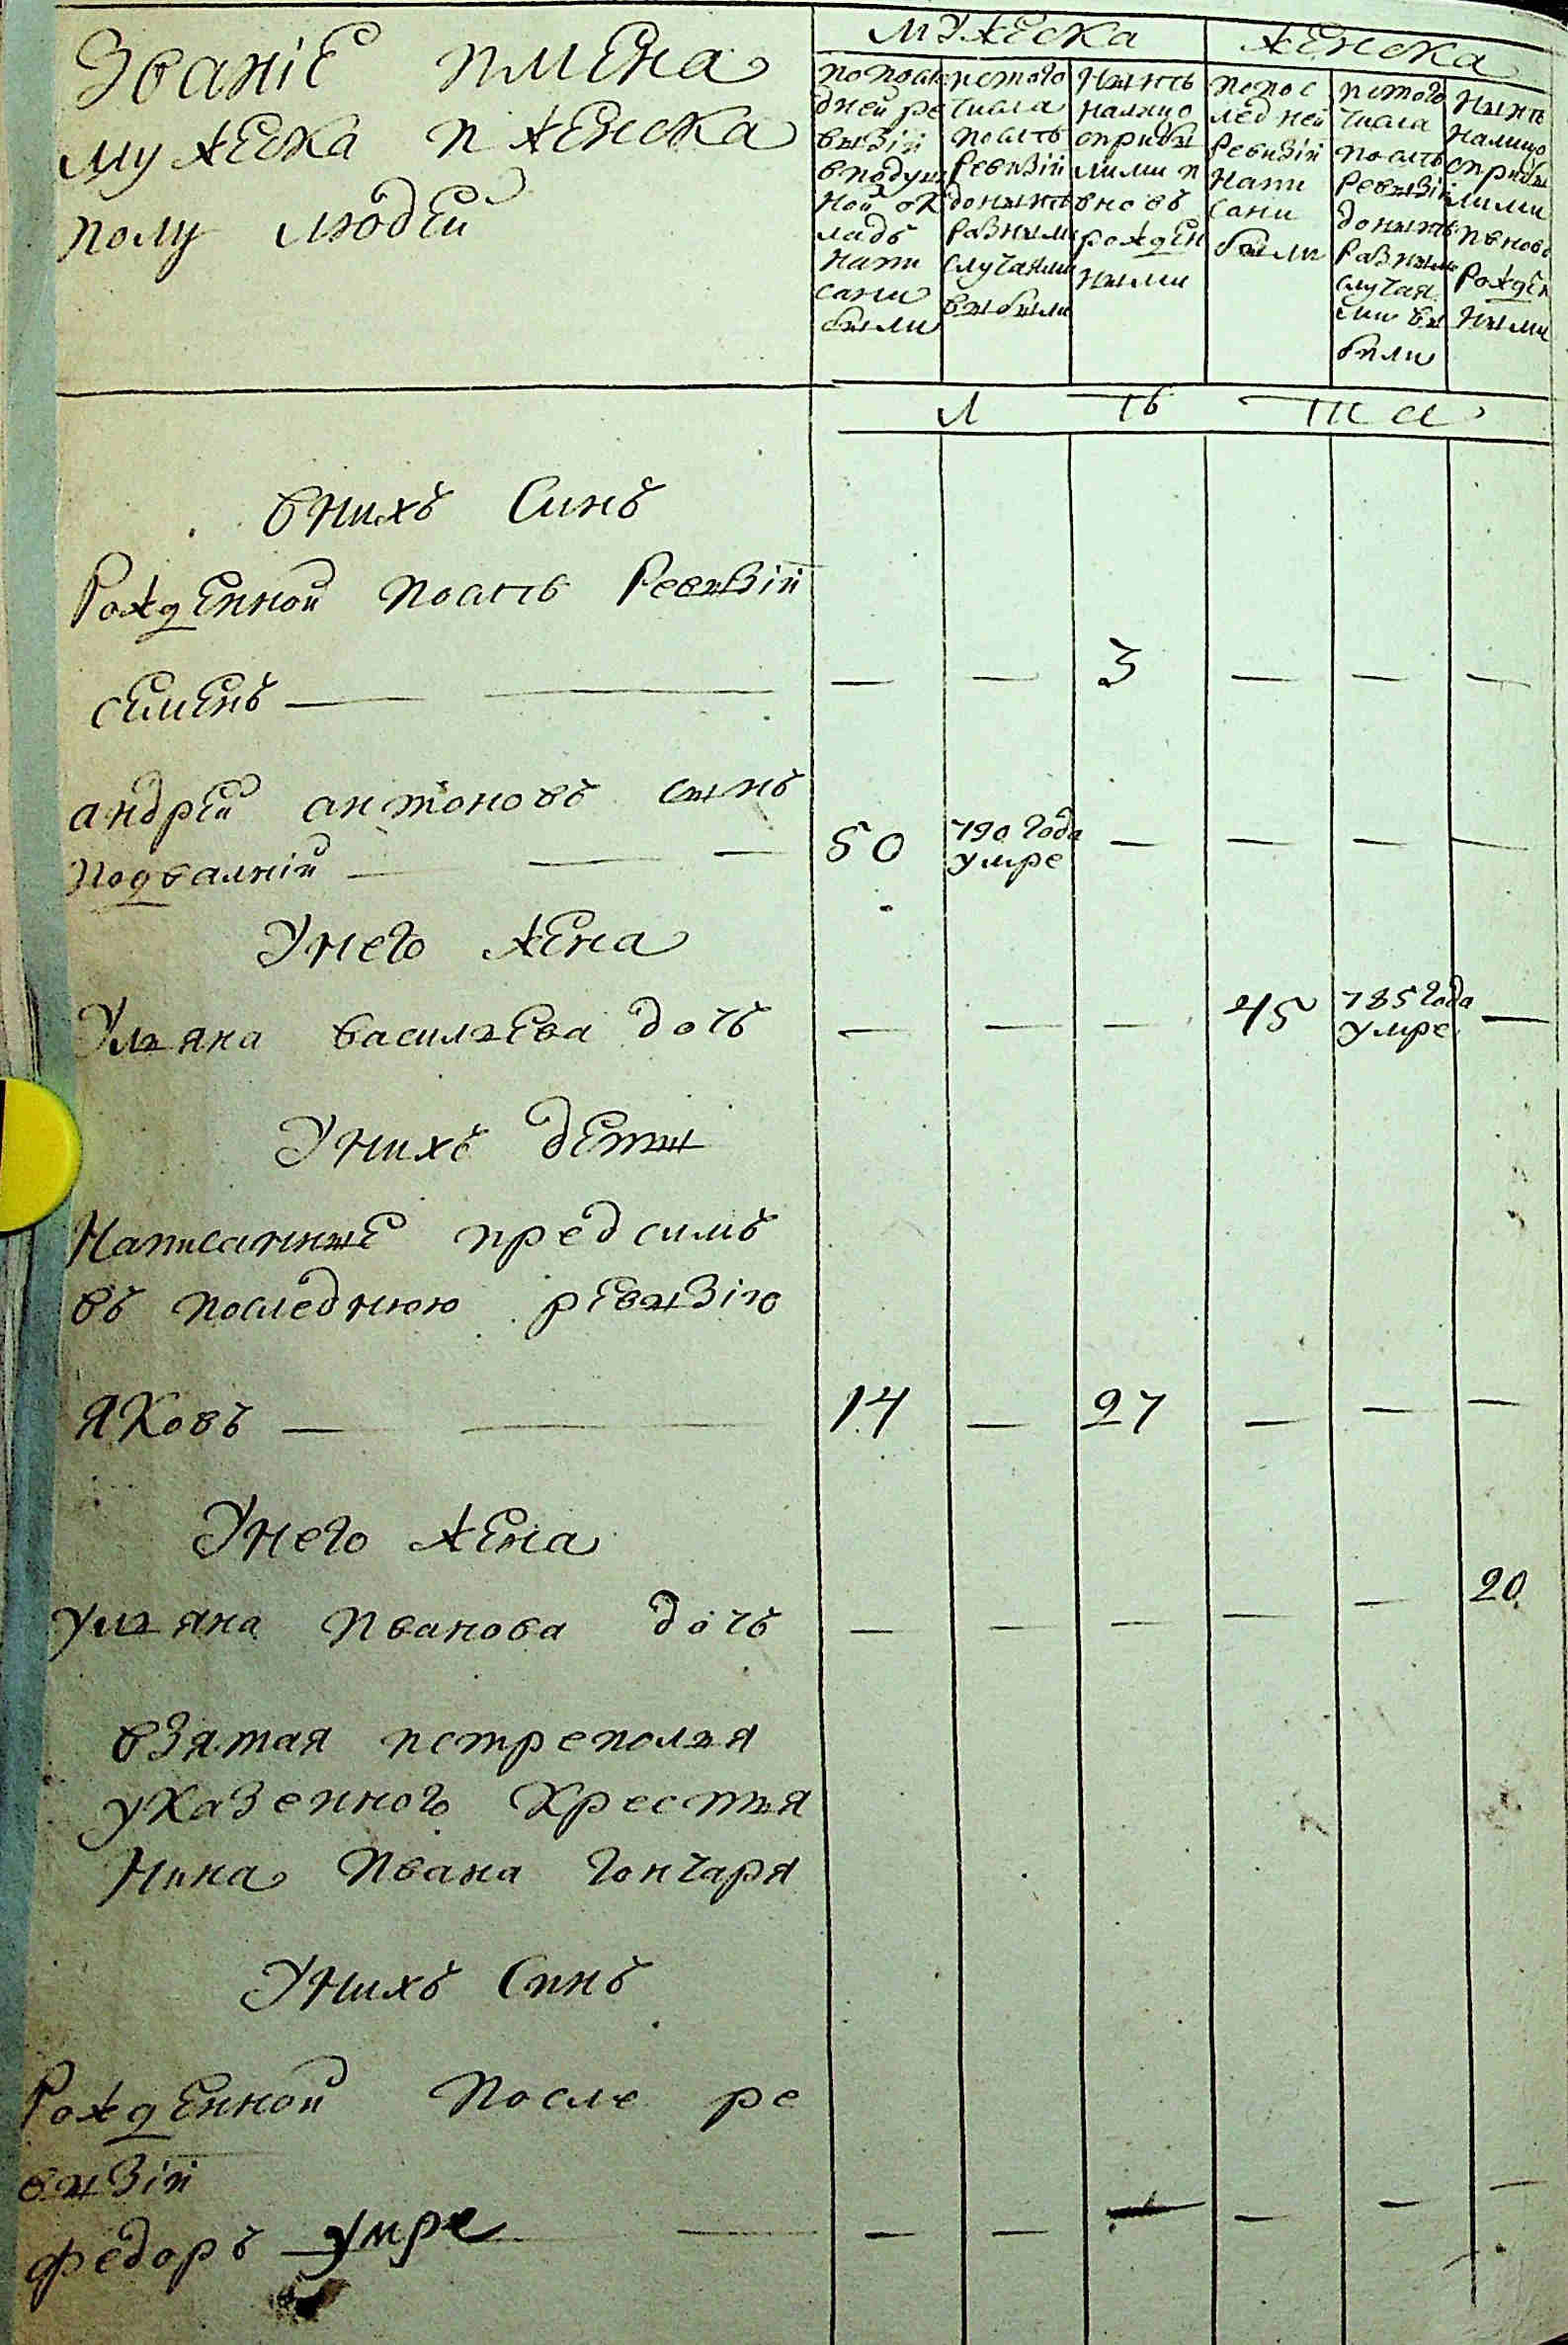 Званіе имена
мужеска и женска
полу людей
мужеска
женска
по после
дней ре
визіи
в подуш
ной ок
ладъ
напи
сани
были
и с того
числа
послѣ
ревизіи
до нынѣ
разными
случаями
выбыли
Нынѣ
налицо
с прибы
лими и
вновъ
рожден
ными
по пос
ледней
ревизіи
напи
сани
были
и с того
числа
послѣ
ревизіи
до нынѣ
разными
случая
ми вы
были
Нынѣ
налицо
с прибы
лими
и вновь
рожден
ными
Л ѣ т а
в нихъ синъ
Рожденной послѣ Ревизіи
семенъ — — — — 3 — — —
андрей антоновъ сынъ
Подвалній — — — 50 790 года умре — — — —
У него жена
Уляна василева дочъ — — — 45 785 года умре —
У нихъ дети
Написанные пред симъ
въ последнюю ревизію
Яковъ — — 14 — 27 — — —
У него жена
уляна иванова дочъ — — — — — 20
взятая и стреполя
у казенного крестья
нина ивана гончаря
У нихъ синъ
Рожденной после ре
визіи
федоръ умре — — — — — — —